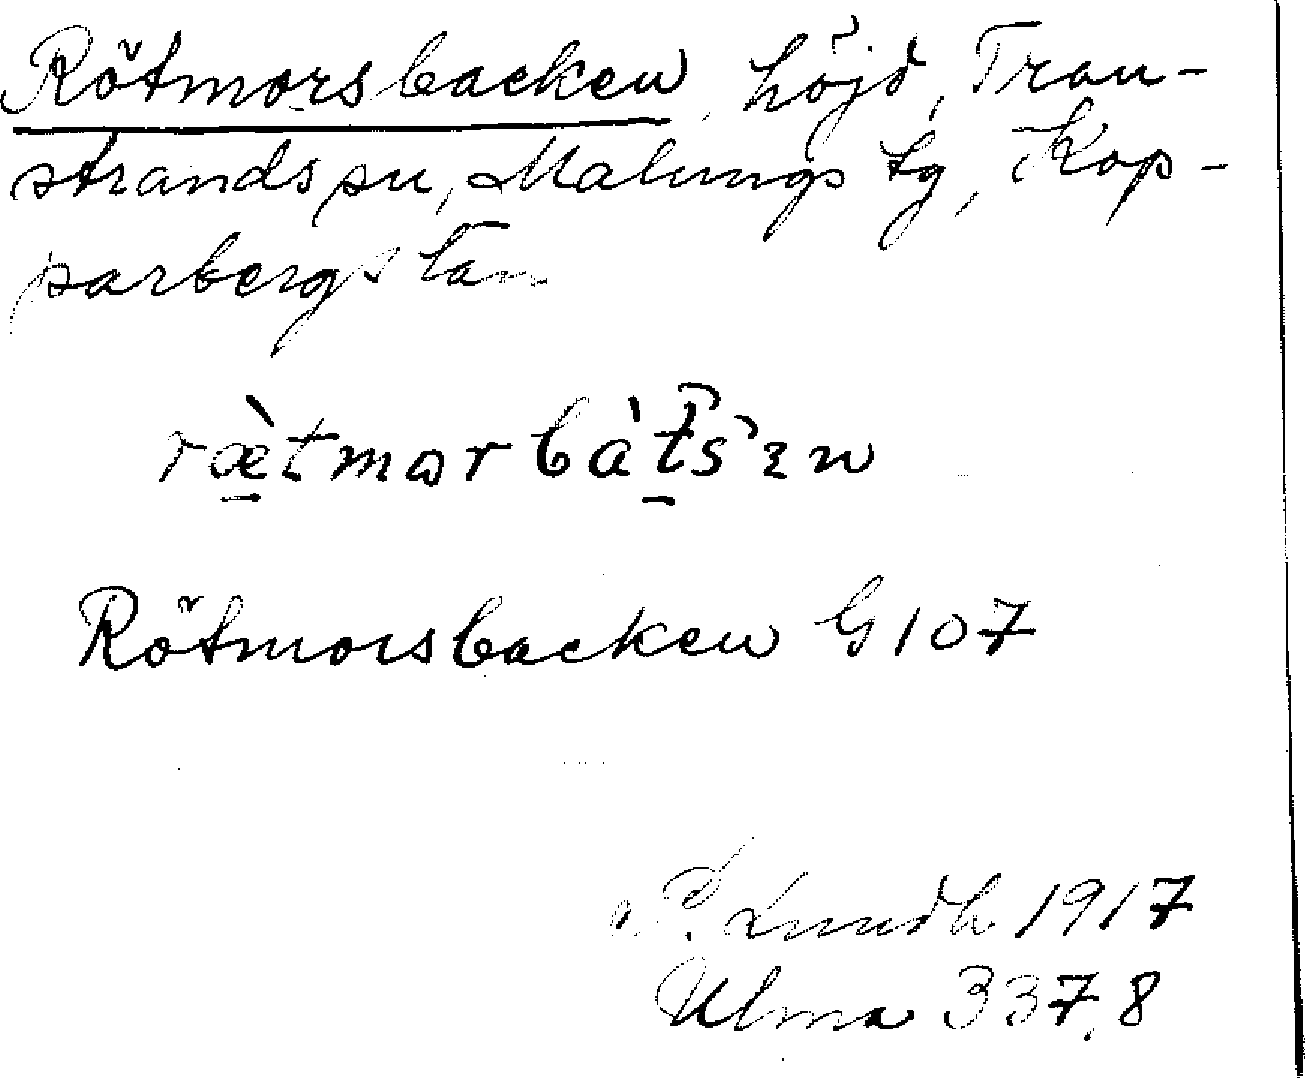 Rötmorsbacken, höjd, Tran-
strands sn, Malungs tg, Kop-
parbergs län
ræ̀tmɷrbàts̓ɛn
Rötmorsbacken G107
P. Lundh 1917
Ulma 337,8